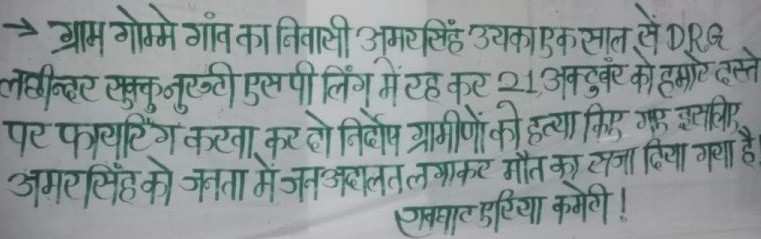 → ग्राम गोम्मे गांव का निवासी अमरसिंह उयका एक साल से DRG
लछीन्दर सुक्कु नुरुटी एस पी लिंग में रह कर 21, अक्टुबर को हमारे दस्ते
पर फायरिंग करवा कर दो निर्दोष ग्रामीणों की हत्या किए गए इसलिए
अमरसिंह को जनता में जनअदालत लगाकर मौत का सजा दिया गया है!
एरिया कमेटी !